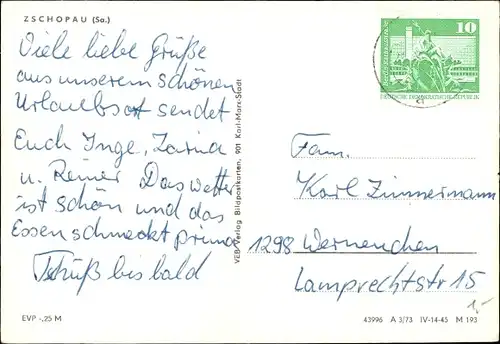 ZSCHOPAU (Sa.)
Viele liebe Grüße
aus unserem schönen
Urlaubsort sendet
Euch Inge, Zarina
u. Reiner Das Wetter
ist schön und das
Essen schmeckt prima
Tschüß bis bald
VEB Verlag Bildpostkarten, 901 Karl-Marx-Stadt
10
DEUTSCHE DEMOKRATISCHE REPUBLIK
Fam.
Karl Zimmermann
1298 Werneuchen
Lamprechtstr 15
1,-
EVP -,25 M
43996 A 3/73 IV-14-45 M 193